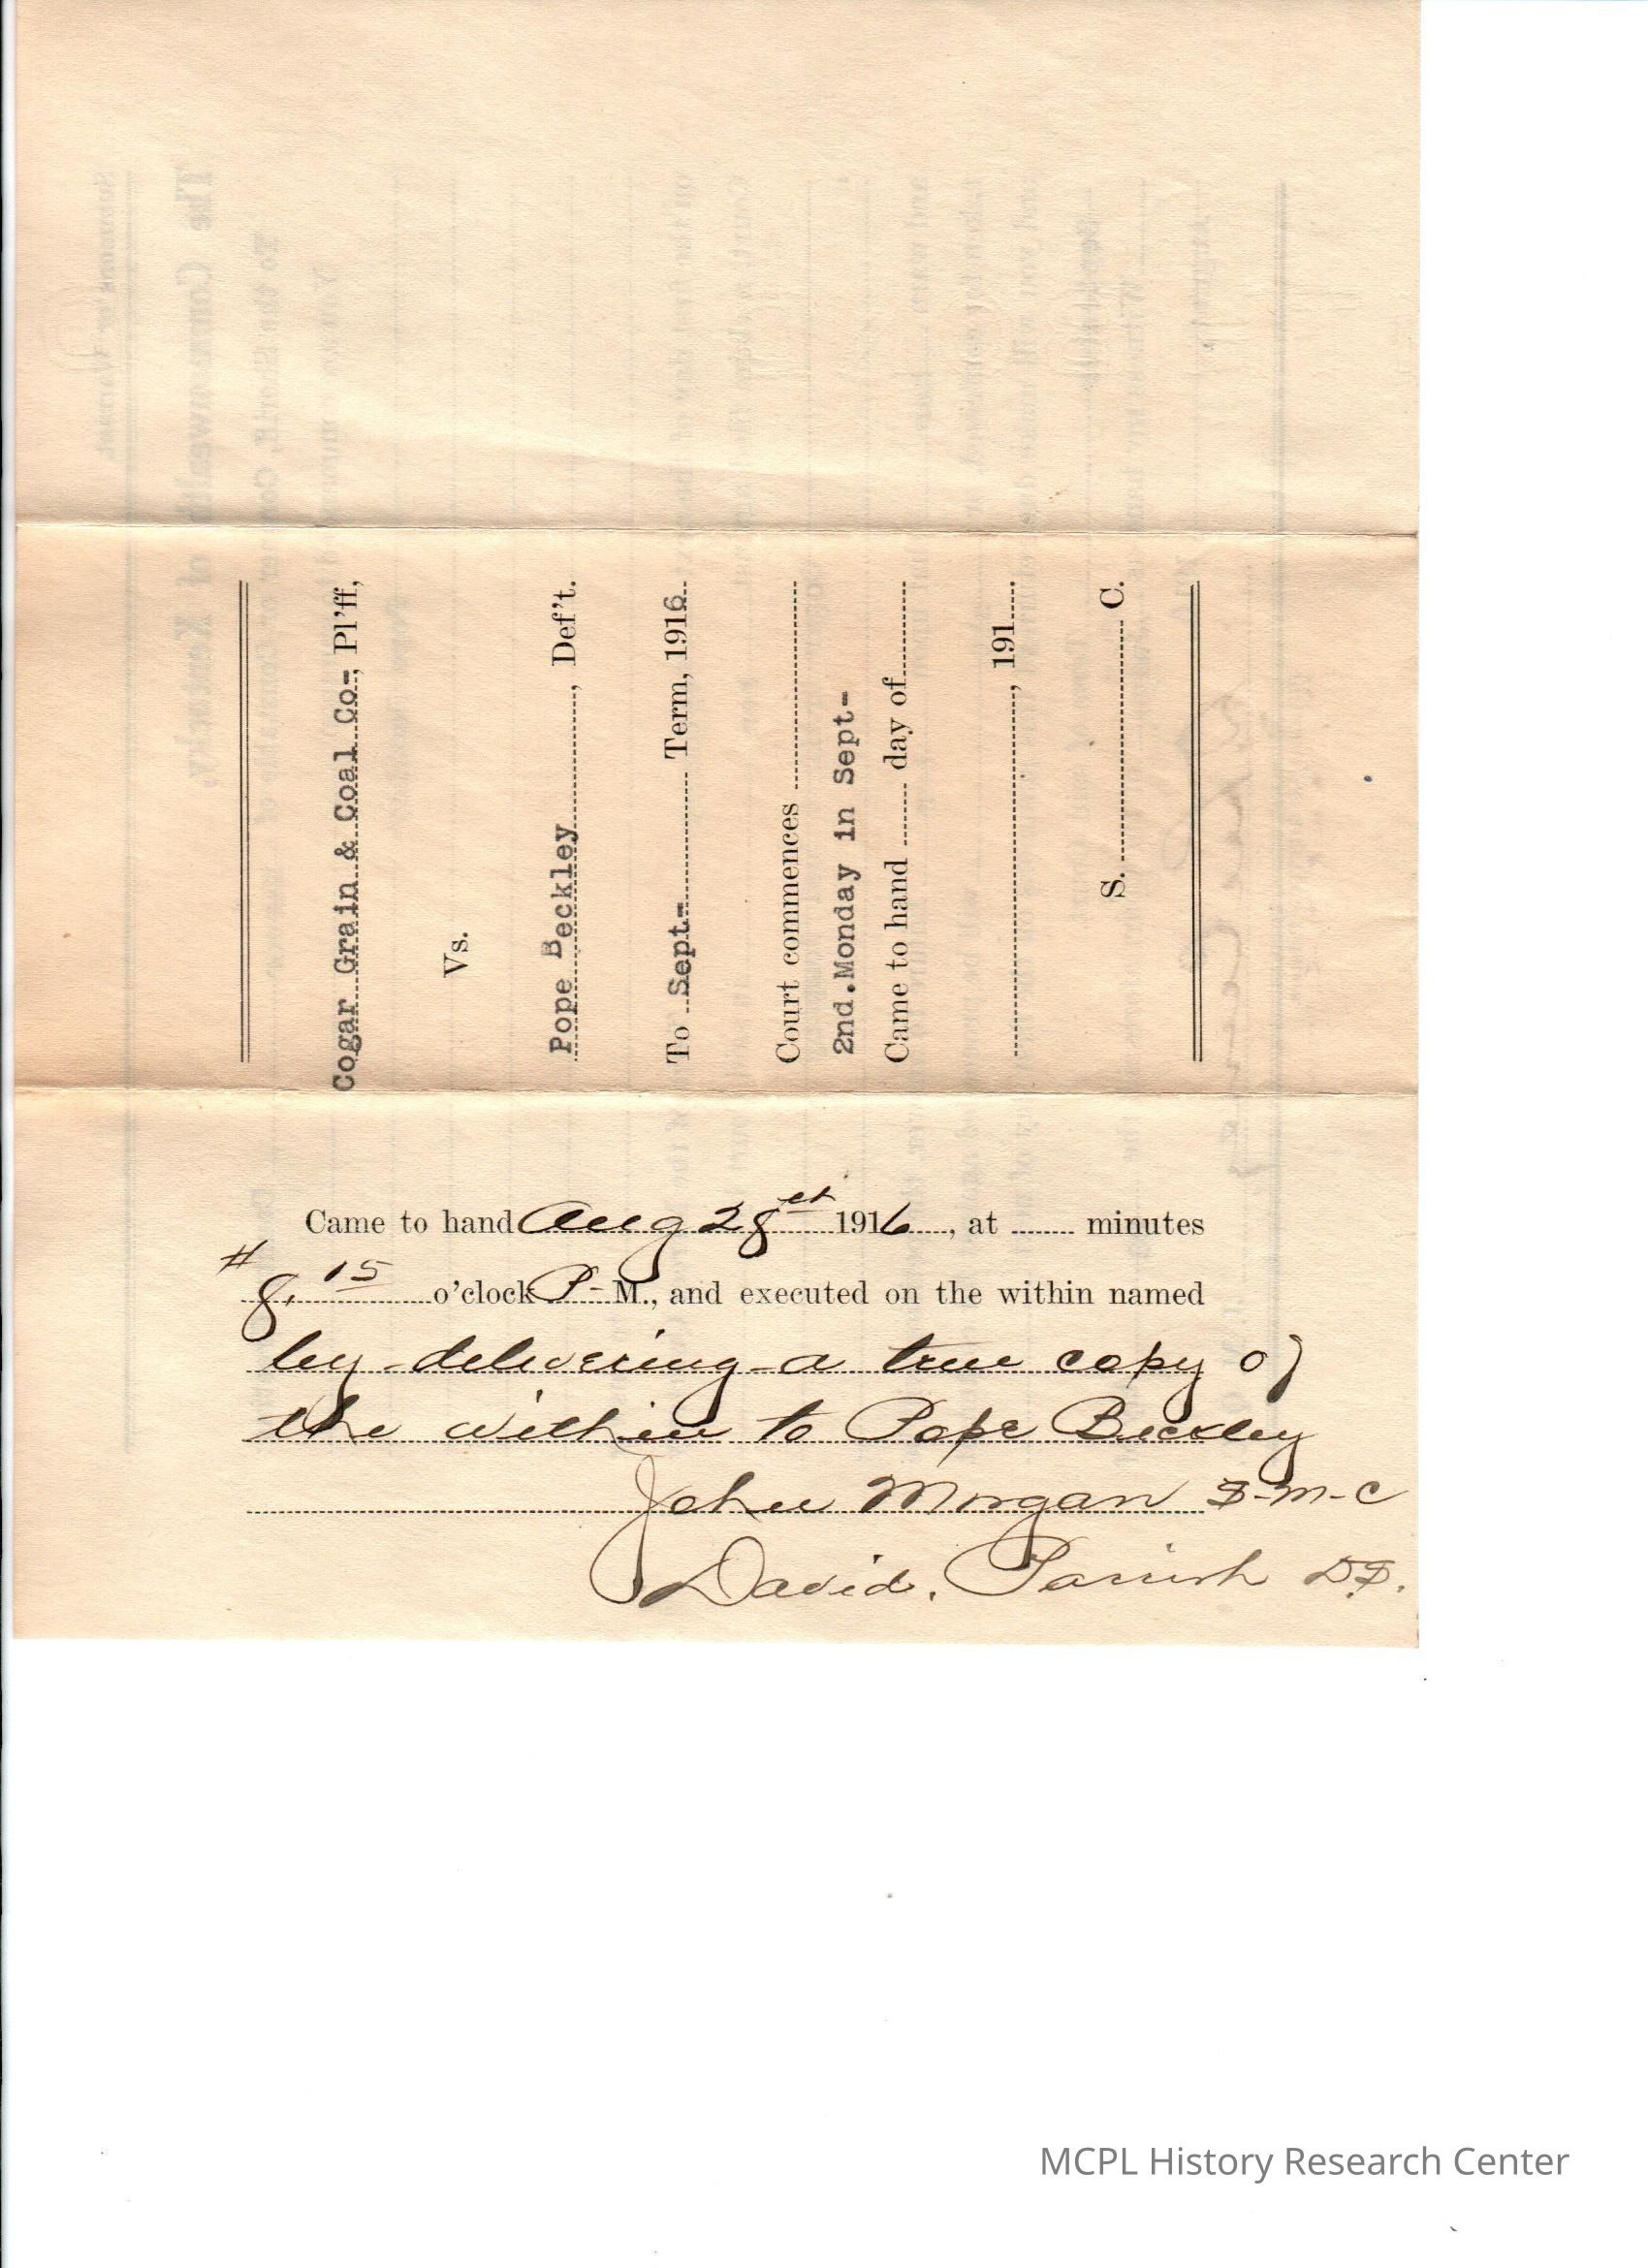 Cogar Grain & Coal Co-, Pl'ff,
Vs.
Pope Beckley, Def't.
To Sept- Term, 1916
Court commences
2nd.Monday in Sept-
Came to hand day of
, 191
S. C.
Came to hand Aug 28th 1916, at minutes
# 8,15 o'clock P- M., and executed on the within named
by-delivering-a true copy of
the within to Pope Beckley
John Morgan S-M-C
David. Parrish DS.
MCPL History Research Center